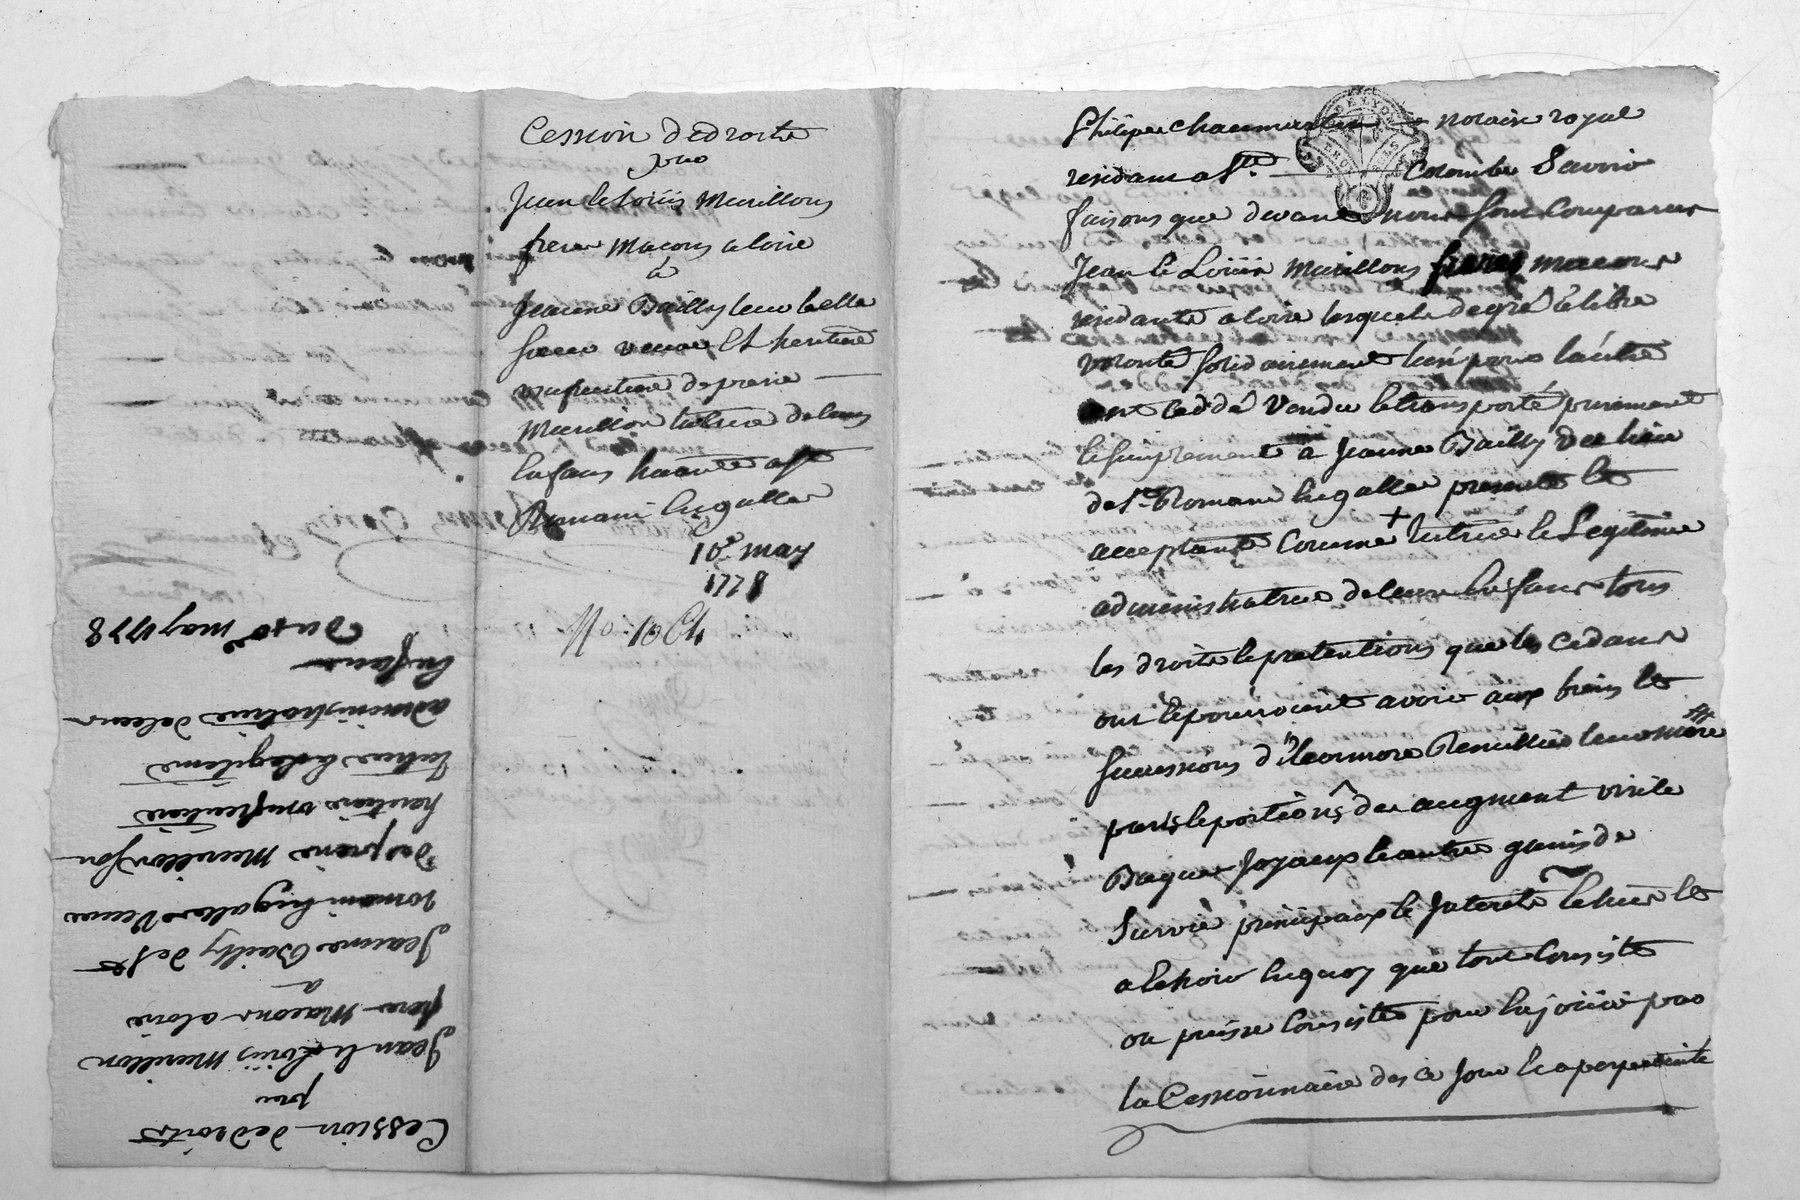 Cession dedroits
par
Jean et Loüis Murillons
freres Macons a loire
à
Jeanne Bailly leur belle
soeur veuve Et heritiere
usufruitiere de pierre
Murillon tutrice deleurs
Enfans habitante a St
Romain Engallier
10e may
1778
No. 10 Ch.
Cession dedroits
par
Jean et Loüis Murillon
freres Macons a loire
a
Jeanne Bailly de St
romain Engallier Veuve
de pierre Murillon son
heritiere usufruitiere
tutrice et legitime
administratrice deleurs
Enfans
Du 10e may 1778
DE LYON
Philipe Chaumartin notaire royal
residant a Ste. Colombe Savoir
faisons que devant nous sont Comparus
Jean et Loüis Murillons freres macons
residants a loire lesquels degré et libre
volonté solidairement l'un pour l'autre
ont Ceddé Vendu et transporté purement
et simplement à Jeanne Bailly du lieu
de St. Romain Engallier presente et
acceptante Comme + tutrice et Legitime
administratrice deleurs Enfans tous
les droits et pretentions que les cedans
ont et pouvoient avoir aux biens et
successions d'Eleonore Remillier leur mere #
parts et portions des augment virile
Bagues Joyaux et autres gains de
Survie principaux et Interets Echus et
a Echoir En quoy que tout Consiste
ou puisse Consister pour En joüir par
la Cessionnaire des ce Jour Et a perpetuité